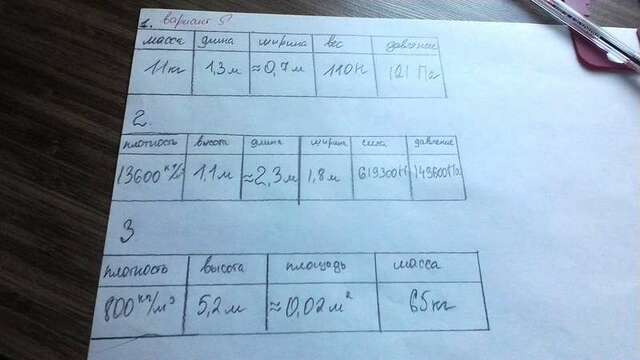 1. вариант 5
масса длина ширина вес давление
11кг 1,3м ≈0,7м 110Н 121 Па
2.
плотность высота длина ширина сила давление
13600кг/м³ 1,1м ≈2,3м 1,8м 619300Н 149600Па
3
плотность высота площадь масса
800кг/м³ 5,2м ≈0,02м² 65кг